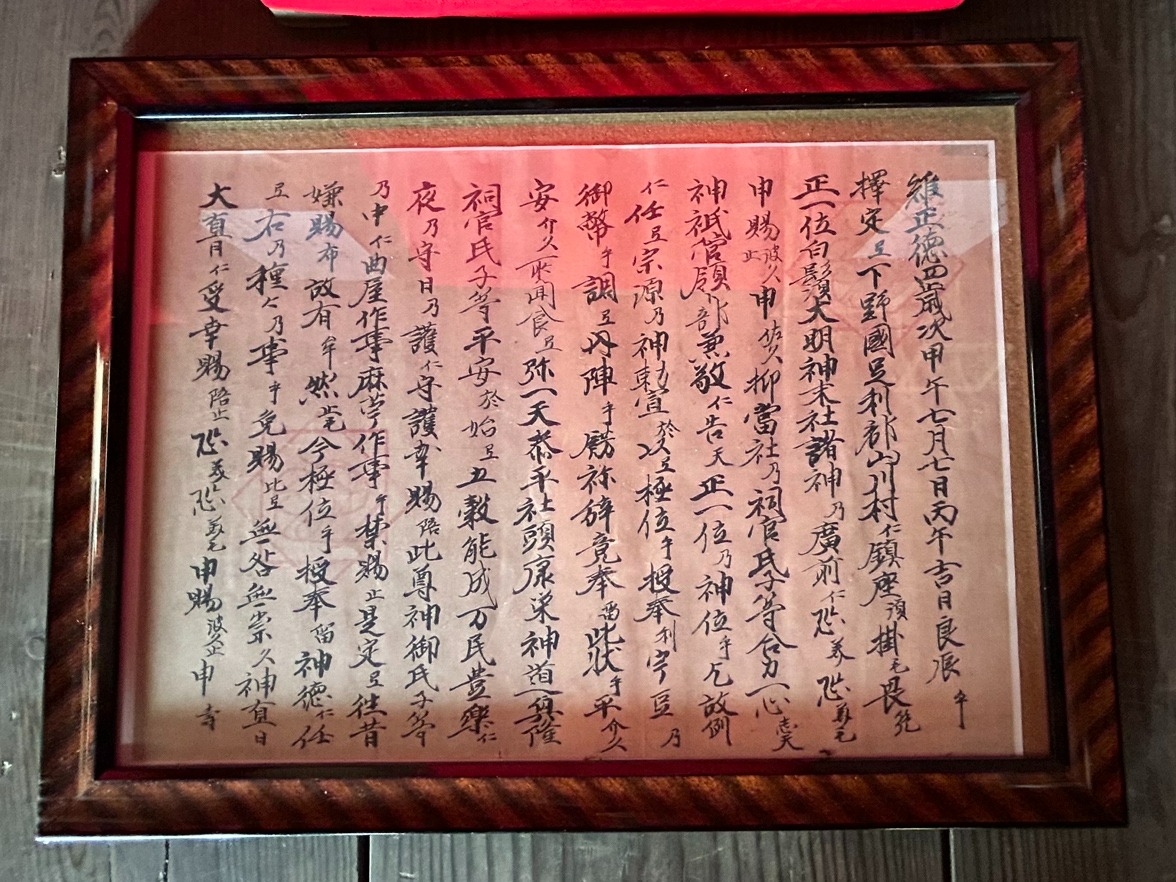 維正徳四歳次甲午七月七日丙午吉日良辰乎
擇定旦下野國足利郡山川村仁鎮座須掛毛畏能
正一位白鬚大明神末社諸神乃廣前仁恐美恐美毛
申賜波久止申佐久抑當社乃祠官氏子等合力一心志天
神祇官領部兼敬仁告天正一位乃神位乎乞故例
仁任旦宗源乃神宣於以旦極位乎授奉利宇豆乃
御幣乎調旦丹陣乎餝祢辞竟奉留此状乎平介久
安介久聞食旦弥一天泰平社頭康栄神道興隆
祠官氏子等平安於始旦五穀能成万民豊樂仁
夜乃守日乃護仁守護幸賜陪此尊神御氏子等
乃中仁曲屋作事麻学作事乎禁賜止是定旦往昔
嫌賜布故有牟然止毛今極位乎授奉留神徳仁任
旦右乃種々乃事乎免賜比旦無咎無祟久神直日
大直日仁受幸賜陪止恐美恐美毛申賜波久止申